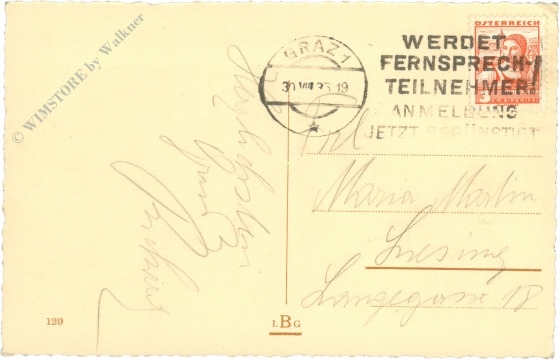 © WIMSTORE by Walkner
GRAZ 1
30.VII.35.19
WERDET
FERNSPRECH-
TEILNEHMER!
ANMELDUNG
JETZT BEGÜNSTIGT
ÖSTERREICH
GROSCHEN
Herzlichsten
Gruß
Frl.
Maria Martin
Liesing
Langegasse 18
129
LBG